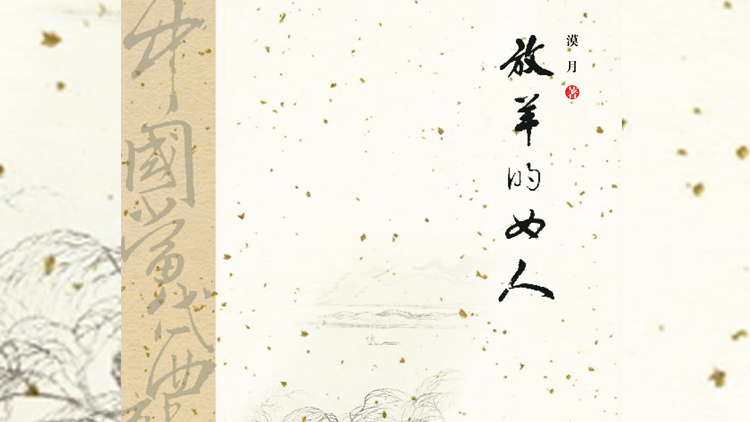 漠月 著
放羊的女人
中國當代西